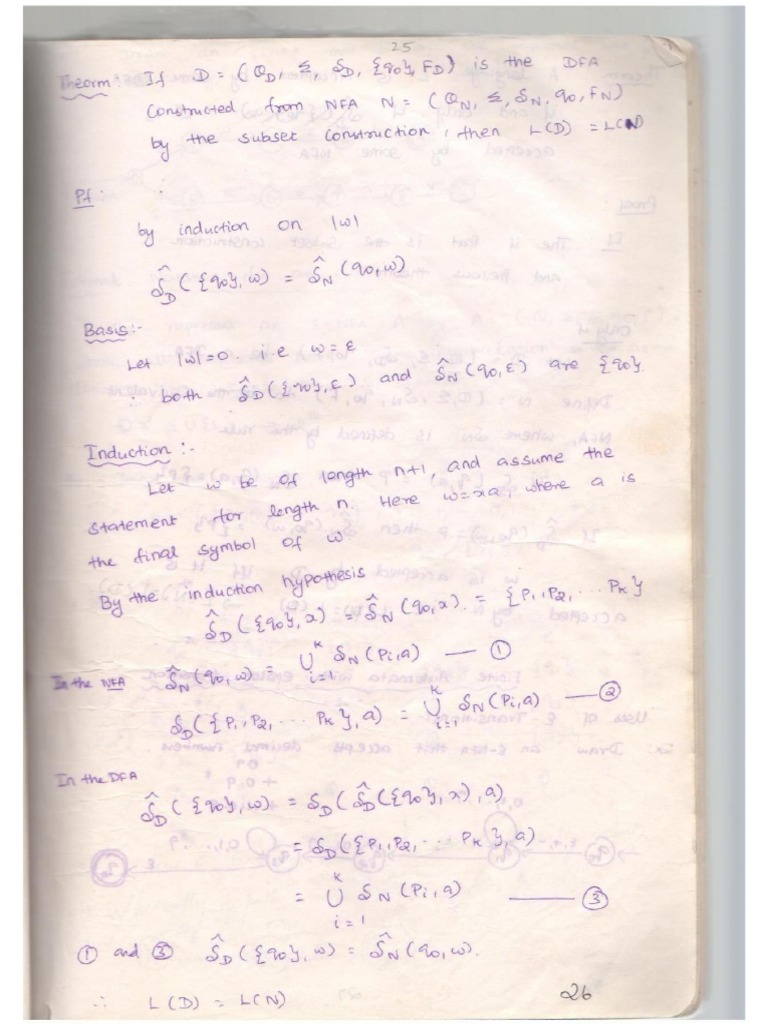 25
Theorm: If D = (Q_D, Σ, δ_D, {q0}, F_D) is the DFA
Constructed from NFA N = (Q_N, Σ, δ_N, q0, F_N)
by the subset construction, then L(D) = L(N)
Pf:
by induction on |w|
δ̂_D({q0}, w) = δ̂_N(q0, w)
Basis:-
Let |w|=0. i.e w = ε
∴ both δ̂_D({q0}, ε) and δ̂_N(q0, ε) are {q0}.
Induction :-
Let w be of length n+1, and assume the
statement for length n. Here w=xa, where a is
the final symbol of w
By the induction hypothesis
δ̂_D({q0}, x) = δ̂_N(q0, x). = {P1, P2, ... Pk}
In the NFA δ̂_N(q0, w) = ⋃_{i=1}^{k} δ_N(Pi, a) — ①
δ_D({P1, P2, ... Pk}, a) = ⋃_{i=1}^{k} δ_N(Pi, a) — ②
In the DFA
δ̂_D({q0}, w) = δ_D(δ̂_D({q0}, x), a)
= δ_D({P1, P2, ... Pk}, a)
= ⋃_{i=1}^{k} δ_N(Pi, a) — ③
① and ③ δ̂_D({q0}, w) = δ̂_N(q0, w).
∴ L(D) = L(N)
26